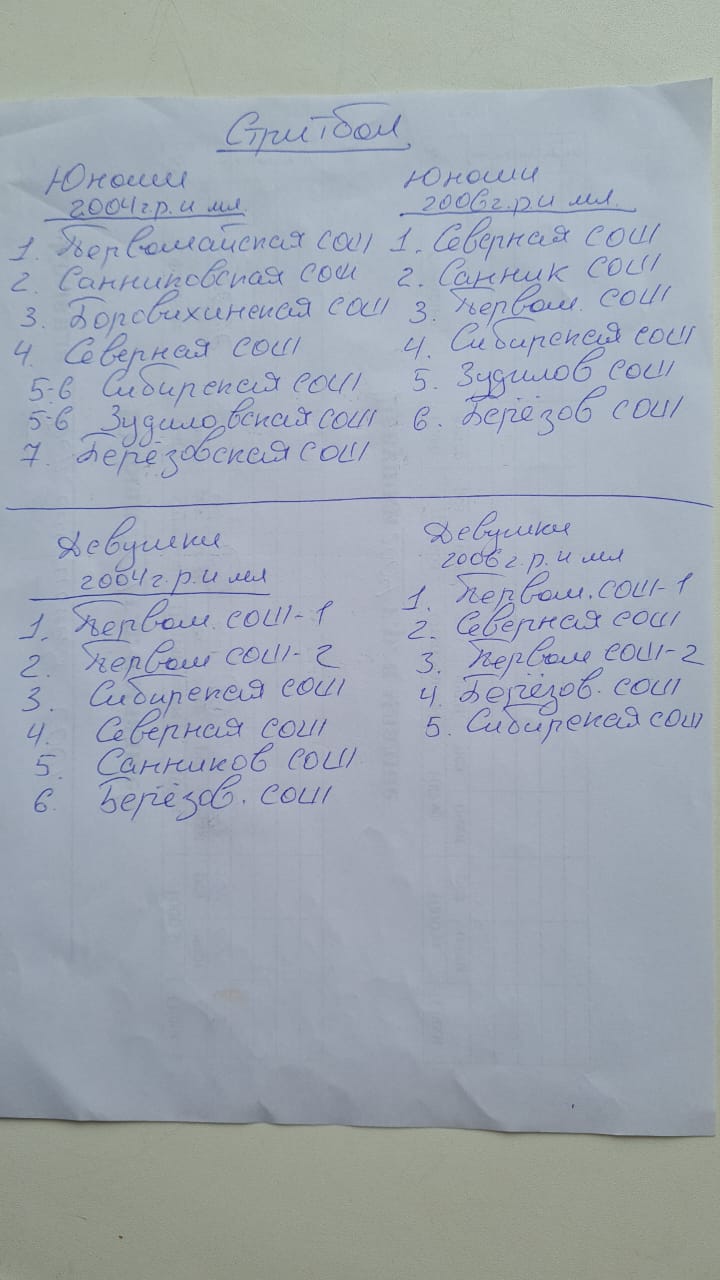 Стритбол
Юноши
2004 г.р. и мл.
1. Первомайская СОШ
2. Санниковская СОШ
3. Боровихинская СОШ
4. Северная СОШ
5-6 Сибирская СОШ
5-6 Зудиловская СОШ
7. Берёзовская СОШ
Юноши
2006 г.р и мл.
1. Северная СОШ
2. Санник СОШ
3. Первом. СОШ
4. Сибирская СОШ
5. Зудилов СОШ
6. Берёзов СОШ
Девушки
2004 г.р. и мл
1. Первом. СОШ-1
2. Первом СОШ-2
3. Сибирская СОШ
4. Северная СОШ
5. Санников СОШ
6. Берёзов. СОШ
Девушки
2006 г. р. и мл
1. Первом. СОШ-1
2. Северная СОШ
3. Первом СОШ-2
4. Берёзов. СОШ
5. Сибирская СОШ